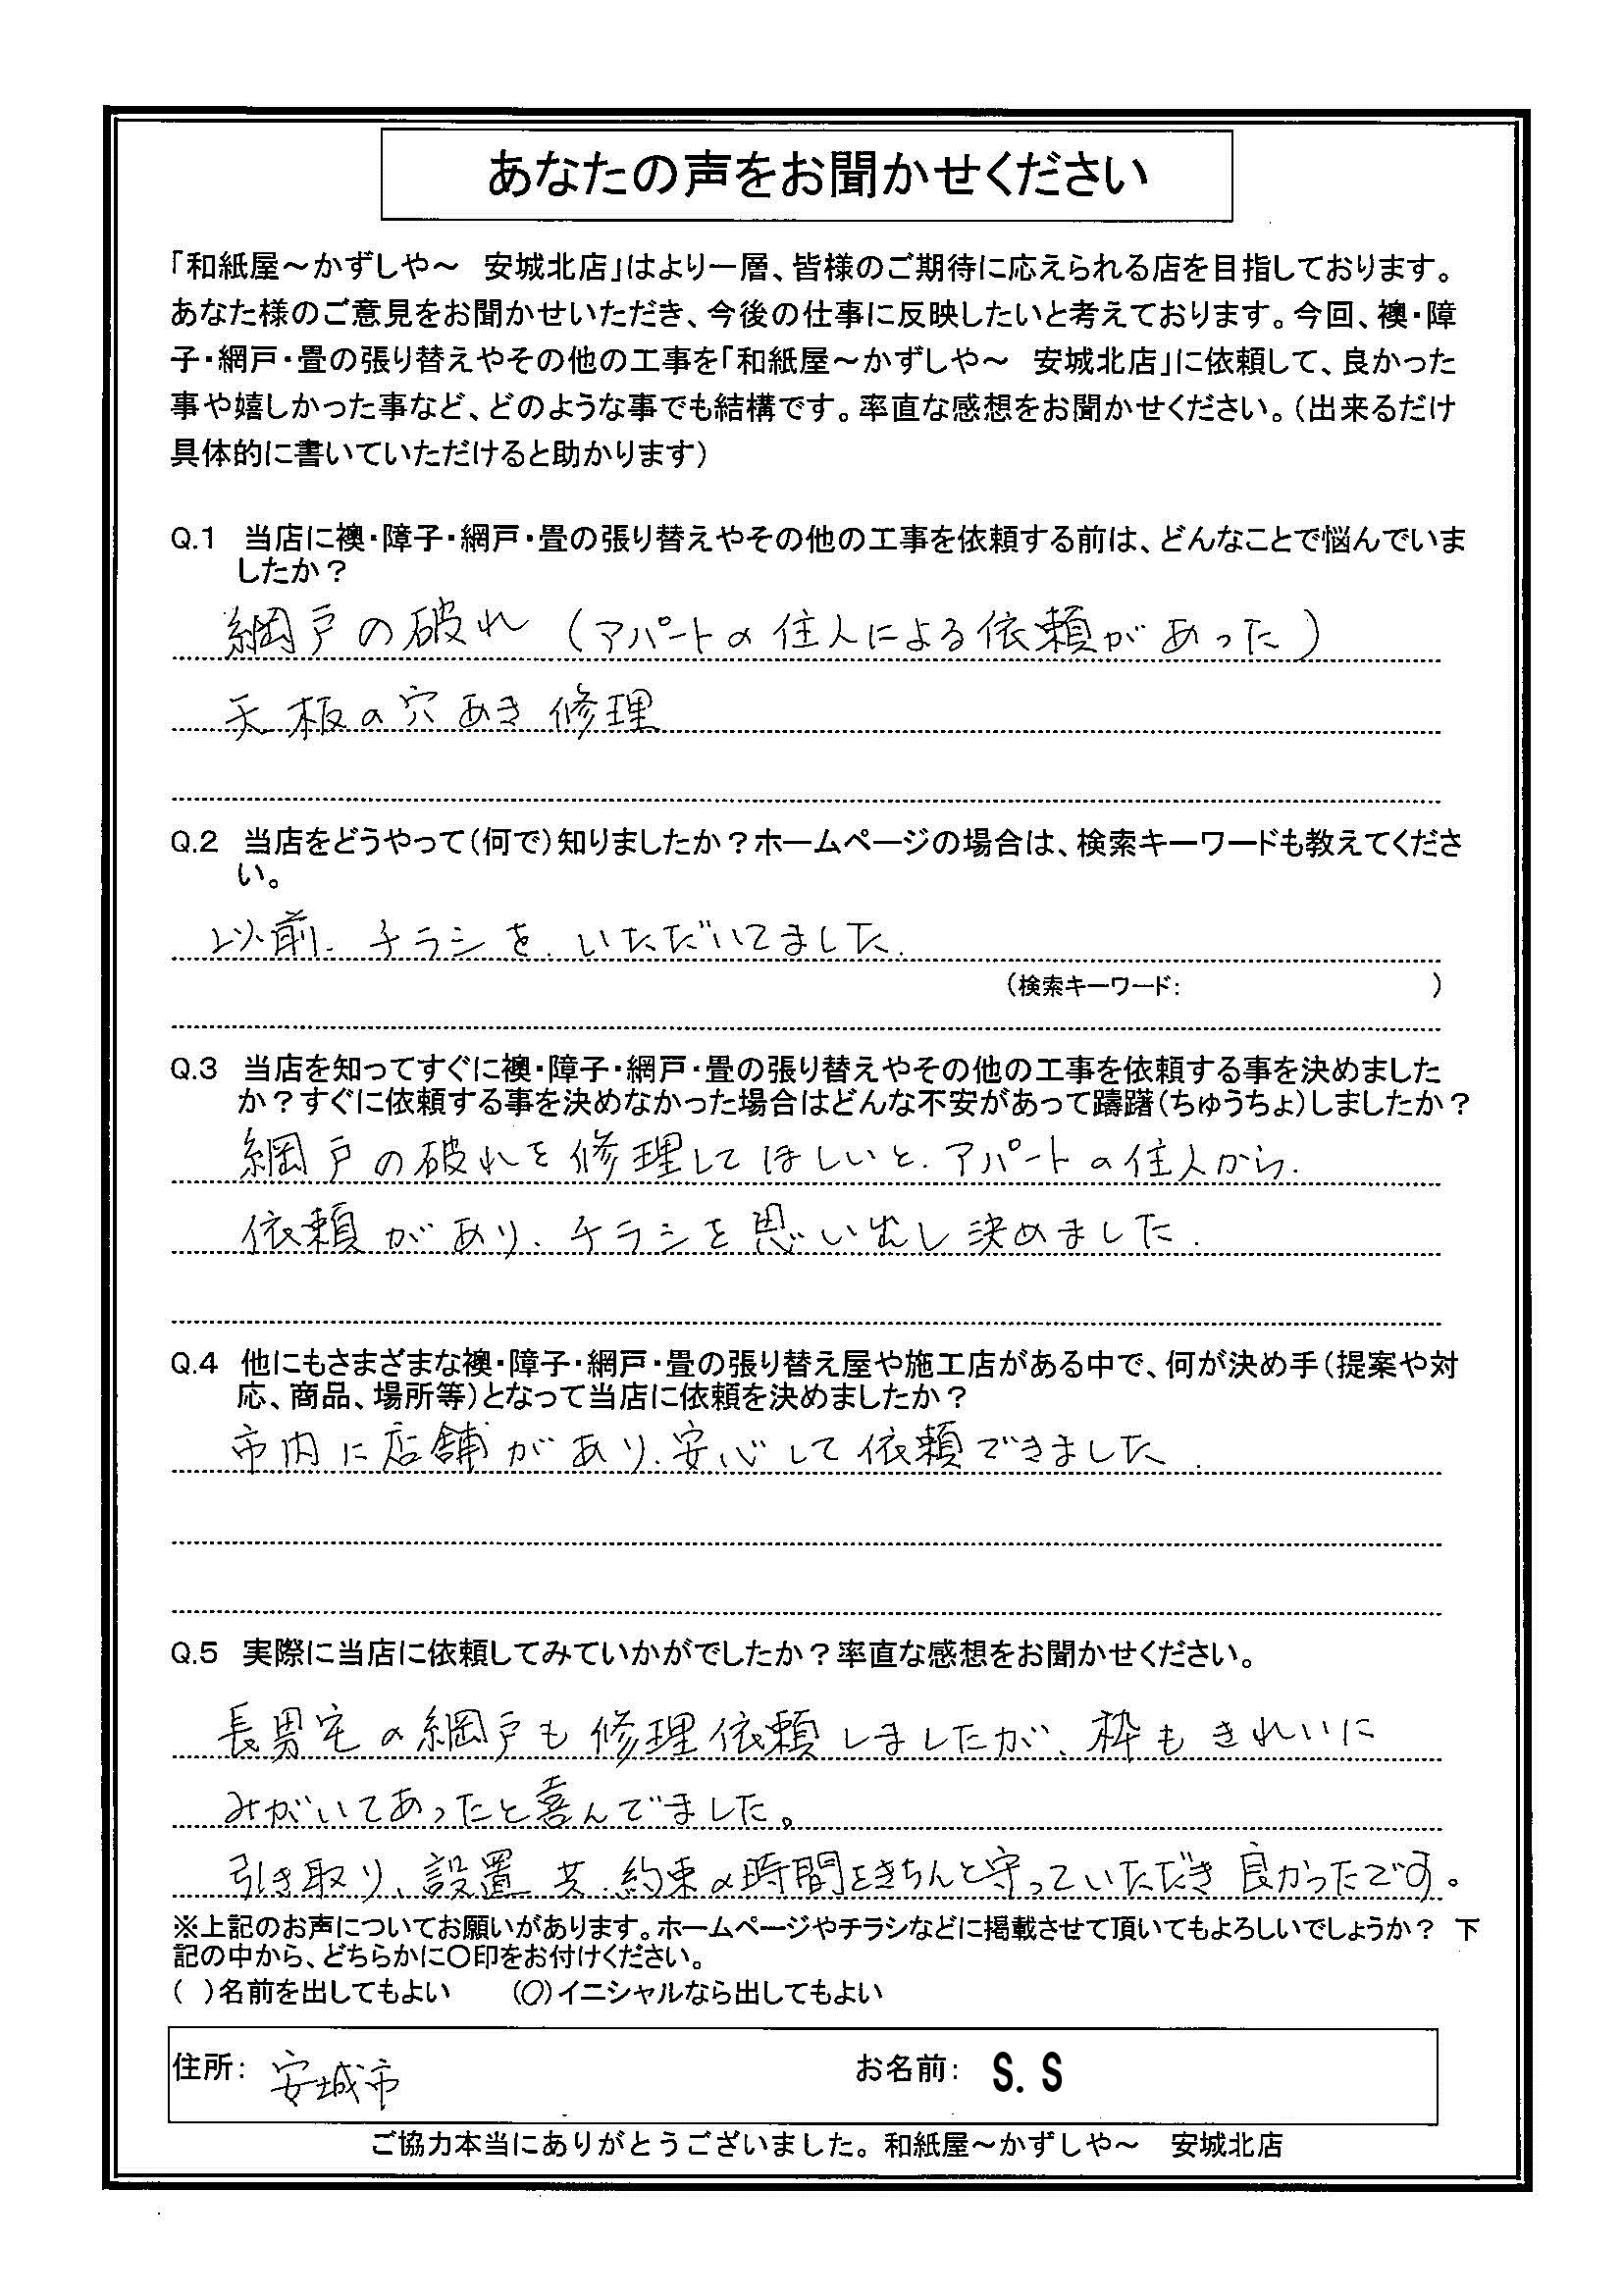 あなたの声をお聞かせください
「和紙屋～かずしや～　安城北店」はより一層、皆様のご期待に応えられる店を目指しております。
あなた様のご意見をお聞かせいただき、今後の仕事に反映したいと考えております。今回、襖・障
子・網戸・畳の張り替えやその他の工事を「和紙屋～かずしや～　安城北店」に依頼して、良かった
事や嬉しかった事など、どのような事でも結構です。率直な感想をお聞かせください。（出来るだけ
具体的に書いていただけると助かります）
Q.1　当店に襖・障子・網戸・畳の張り替えやその他の工事を依頼する前は、どんなことで悩んでいま
したか？
網戸の破れ（アパートの住人による依頼があった）
天板の穴あき修理
Q.2　当店をどうやって（何で）知りましたか？ホームページの場合は、検索キーワードも教えてくださ
い。
以前、チラシを、いただいてました．
（検索キーワード：　　　　　）
Q.3　当店を知ってすぐに襖・障子・網戸・畳の張り替えやその他の工事を依頼する事を決めました
か？すぐに依頼する事を決めなかった場合はどんな不安があって躊躇（ちゅうちょ）しましたか？
網戸の破れを修理してほしいと、アパートの住人から、
依頼があり、チラシを思い出し決めました．
Q.4　他にもさまざまな襖・障子・網戸・畳の張り替え屋や施工店がある中で、何が決め手（提案や対
応、商品、場所等）となって当店に依頼を決めましたか？
市内に店舗があり、安心して依頼できました．
Q.5　実際に当店に依頼してみていかがでしたか？率直な感想をお聞かせください。
長男宅の網戸も修理依頼しましたが、枠もきれいに
みがいてあったと喜んでました。
引き取り、設置共、約束の時間をきちんと守っていただき良かったです。
※上記のお声についてお願いがあります。ホームページやチラシなどに掲載させて頂いてもよろしいでしょうか？　下
記の中から、どちらかに〇印をお付けください。
（　）名前を出してもよい　　（〇）イニシャルなら出してもよい
住所：　安城市　　お名前：　S.S
ご協力本当にありがとうございました。和紙屋～かずしや～　安城北店